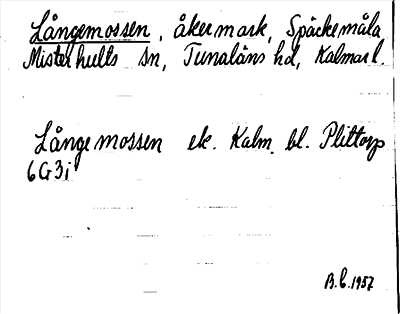 Långemossen, åkermark, Späckemåla
Misterhults sn, Tunaläns hd, Kalmar l.
Långemossen ek. Kalm. bl. Plittorp
6G3i
B.C. 1957